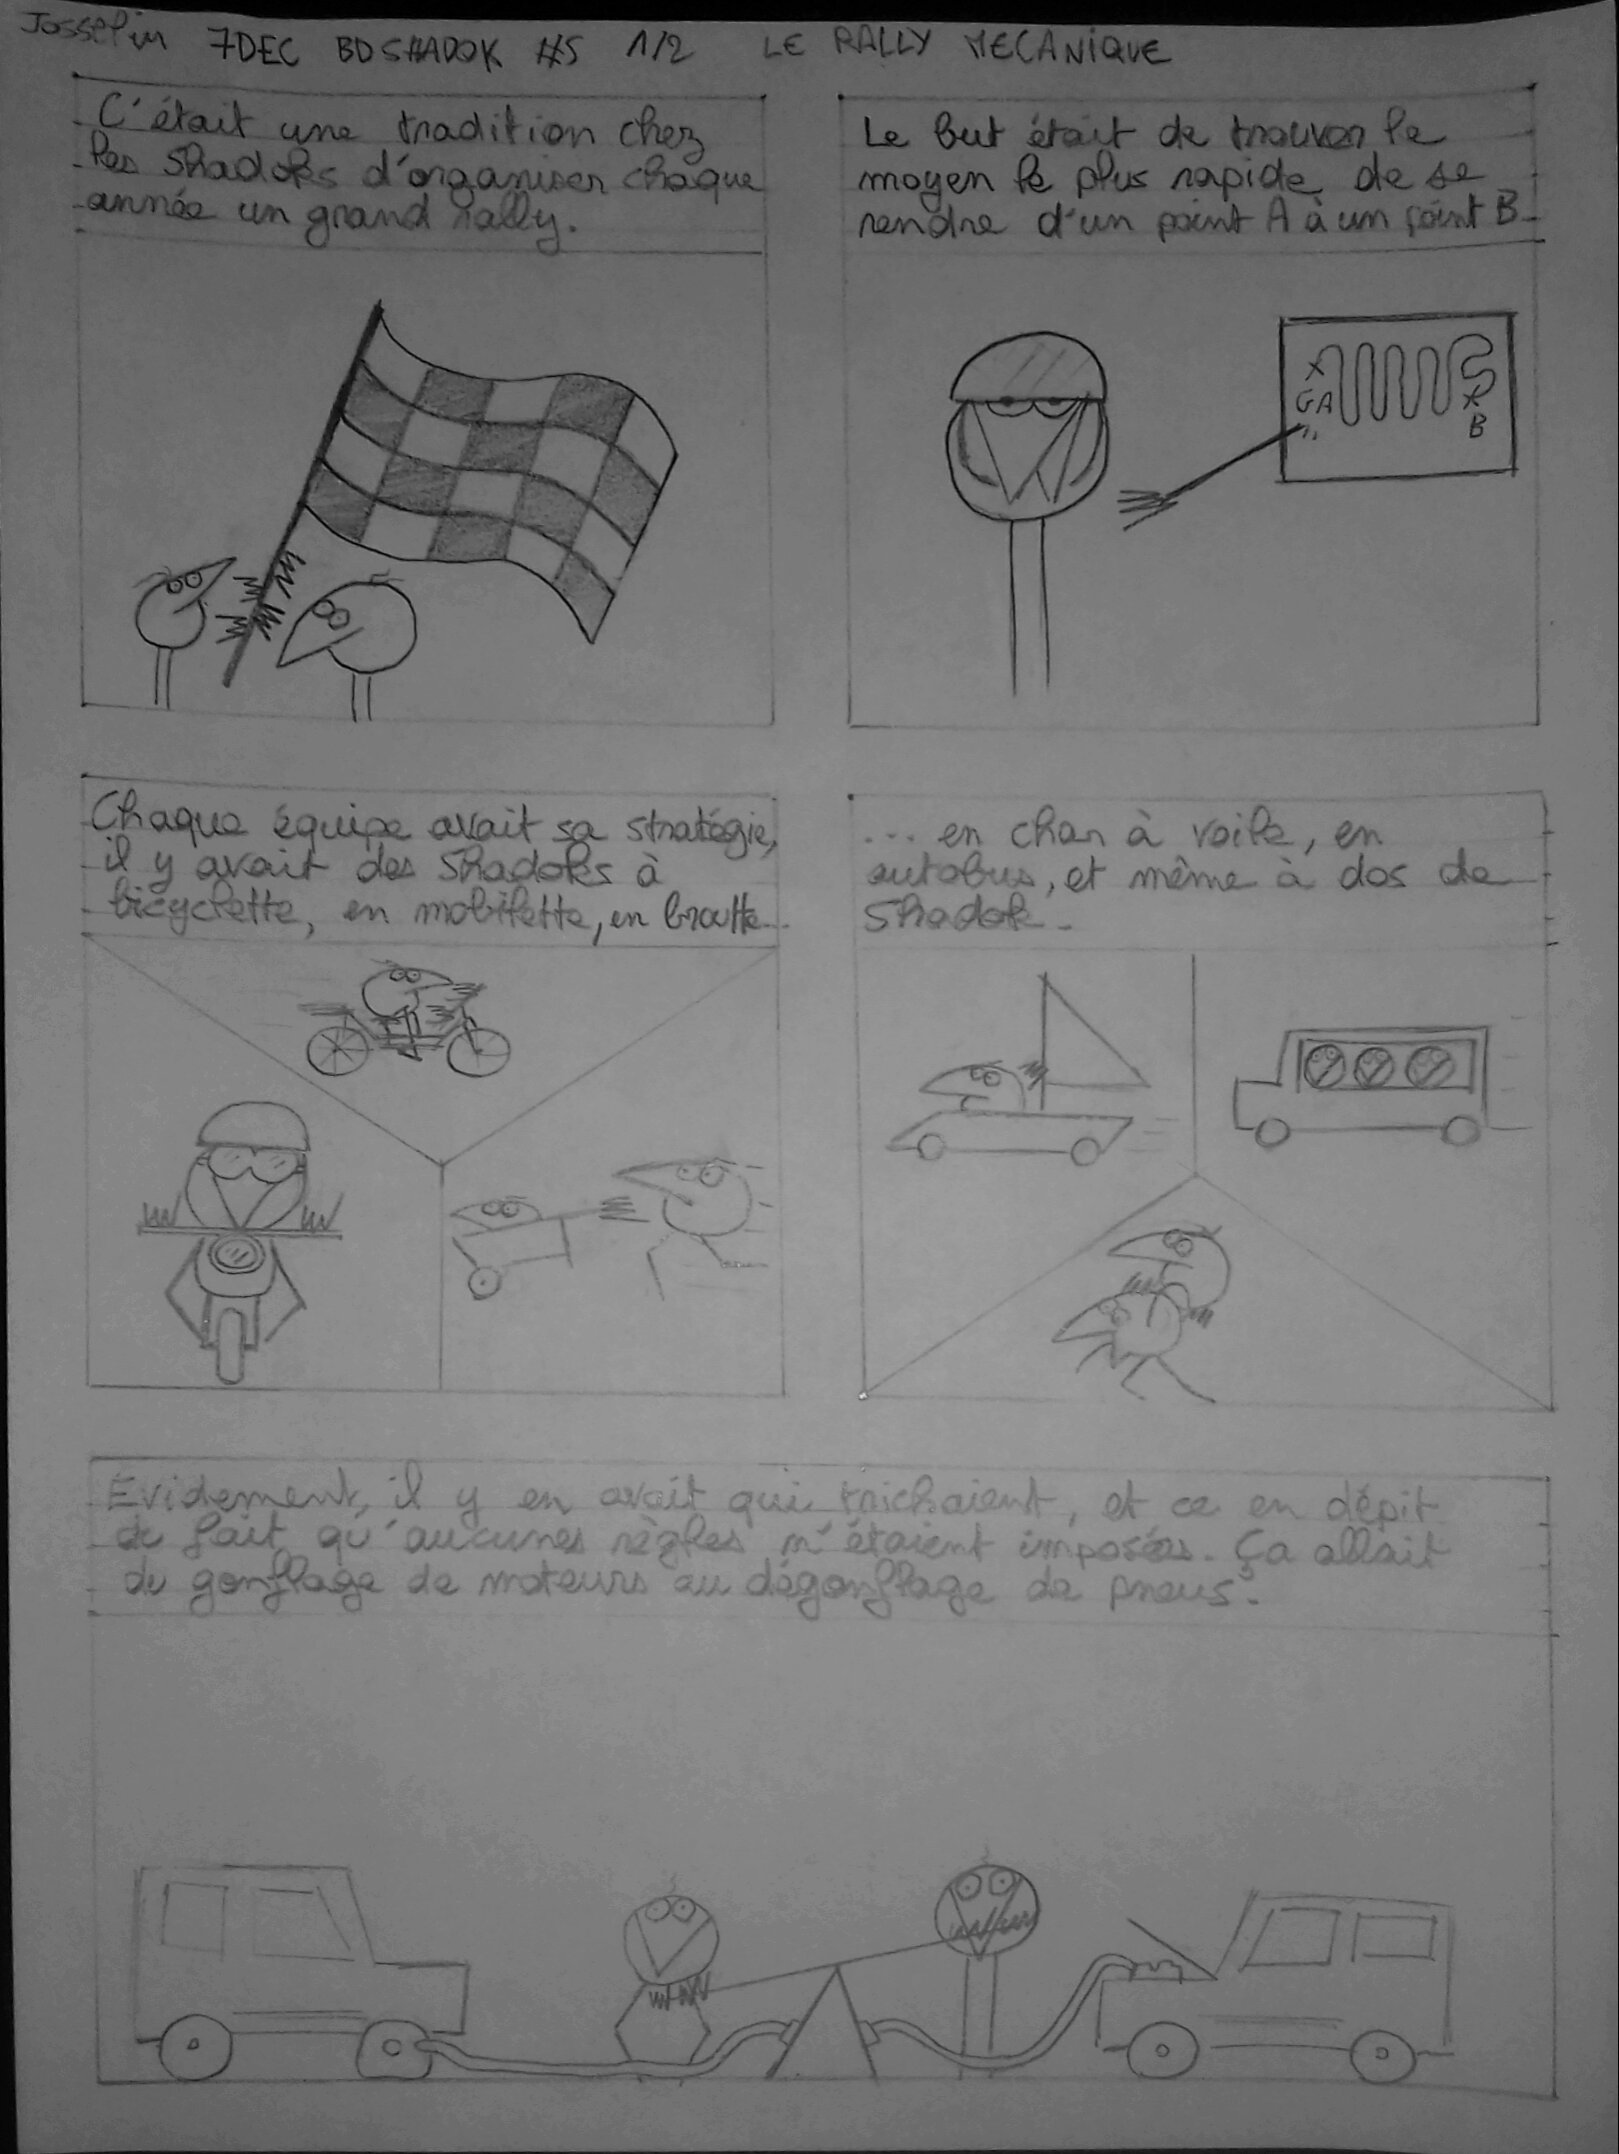 Josselin 7DEC BD SHADOK #5 1/2 LE RALLY MECANIQUE
C'était une tradition chez
les Shadoks d'organiser chaque
année un grand rally.
Le but était de trouver le
moyen le plus rapide de se
rendre d'un point A à un point B
X
GA
X
B
Chaque équipe avait sa stratégie,
il y avait des Shadoks à
bicyclette, en mobilette, en broutte
... en char à voile, en
autobus, et même à dos de
Shadok.
Evidement, il y en avait qui trichaient, et ce en dépit
du fait qu'aucunes règles n'étaient imposées. Ça allait
du gonflage de moteurs au dégonflage de pneus.